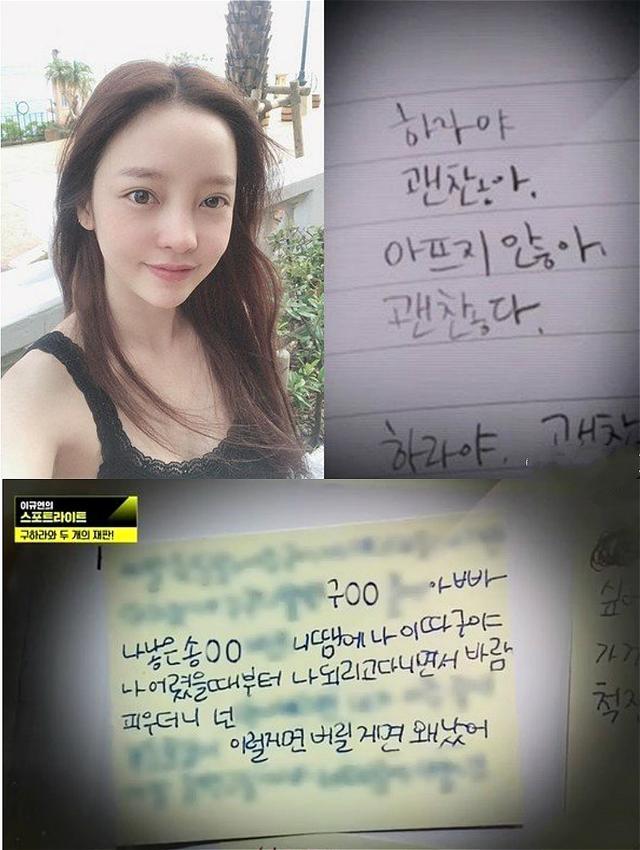 하라야
괜찮아.
아프지 않아.
괜찮다.
하라야. 괜찮
이규연의
스포트라이트
구하라와 두 개의 재판!
구OO 아빠
나낳은송OO 니땜에 나 이따구야
나 어렸을때부터 나 되리고다니면서 바람
피우더니 넌
이럴거면 버릴 거면 왜낳았어
싶
가
척